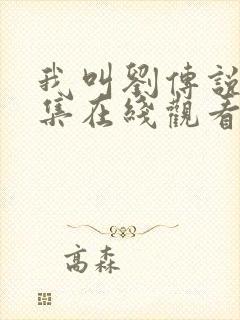 我叫劉傳説
集在綫觀看
高森